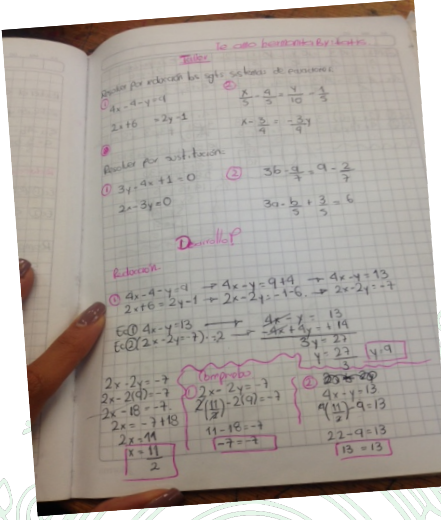 Taller
Resolver por reducción los sgtes sistemas de ecuaciones
① 4x-4-y=9
2x+6 =2y-1
② x/5 - 4/5 = y/10 - 1/5
x- 3/4 = -3/4 y
Resolver por sustitución:
① 3y-4x+1=0
2x-3y=0
② 3b- a/7 = 9- 2/7
3a- b/5 + 3/5 = 6
Desarrollo
Reducción
① 4x-4-y=9 → 4x-y=9+4 → 4x-y=13
2x+6=2y-1 → 2x-2y=-1-6 → 2x-2y=-7
Ec① 4x-y=13 → 4x-y= 13
Ec② (2x-2y=-7)·-2 → -4x+4y=+14
3y=27
y=27/3 y=9
2x-2y=-7
2x-2(9)=-7
2x-18=-7
2x=-7+18
2x=11
x=11/2
Comprobo
① 2x-2y=-7
2(11/2)-2(9)=-7
11-18=-7
-7=-7
②
4x-y=13
4(11/2)-9=13
22-9=13
13=13